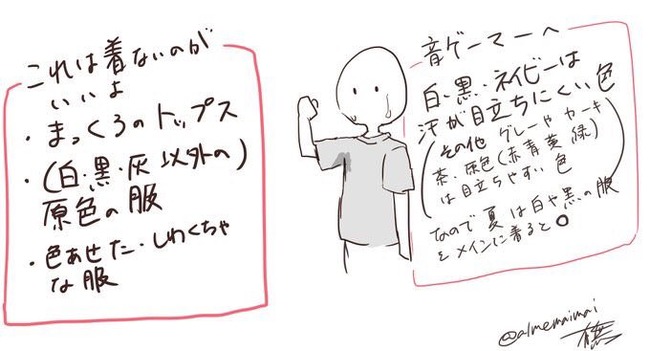 これは着ないのが
いいよ
・まっくろのトップス
・(白・黒・灰以外の)
原色の服
・色あせた・しわくちゃ
な服
音ゲーマーへ
白・黒・ネイビーは
汗が目立ちにくい色
(その他 グレーやカーキ
茶・原色(赤青黄緑)
は目立ちやすい色)
なので夏は白や黒の服
をメインに着ると○
@almemaimai